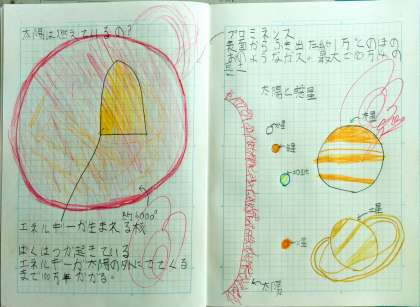 太陽は燃えているの?
約6000°
エネルギーが生まれる核
ばくはつが起きている
エネルギーが太陽の外にでてくる
まで100万年かかる。
プロミネンス
表面からふき出た約1万どのほの
おのようなガス。最大で10万kmの
太陽と惑星
水星
金星
地球
火星
木星
土星
太陽